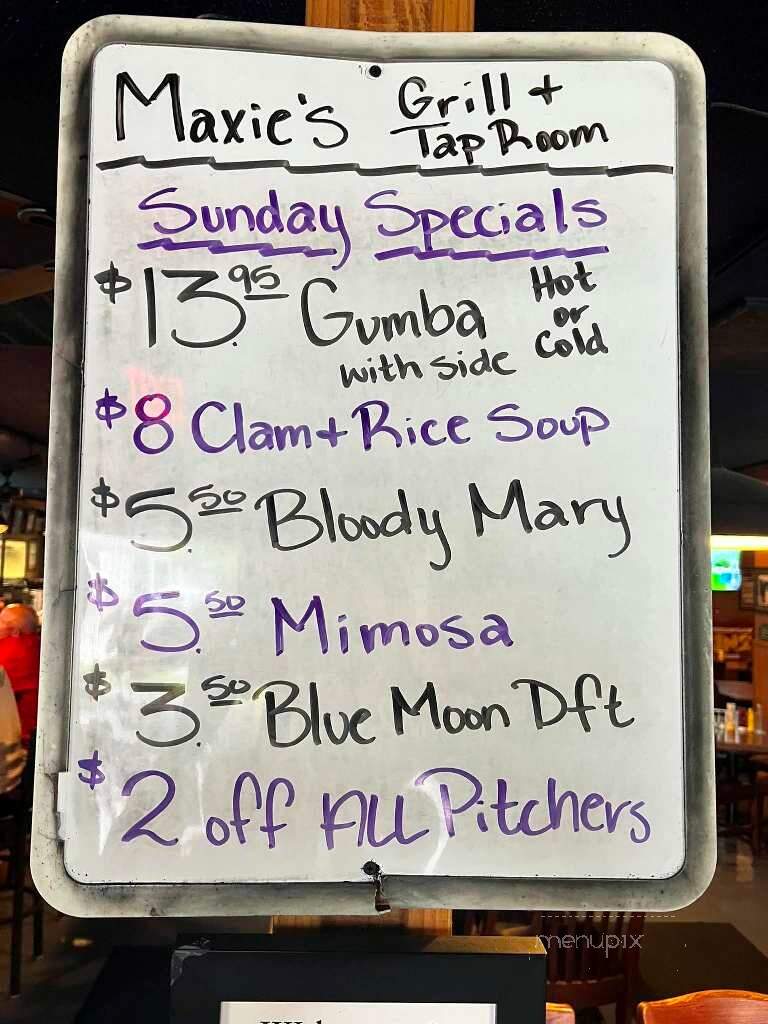 Maxie's Grill +
Tap Room
Sunday Specials
$13.95 Gumba Hot
or
with side Cold
$8 Clam + Rice Soup
$5.50 Bloody Mary
$5.50 Mimosa
$3.50 Blue Moon Dft
$2 off ALL Pitchers
menupix